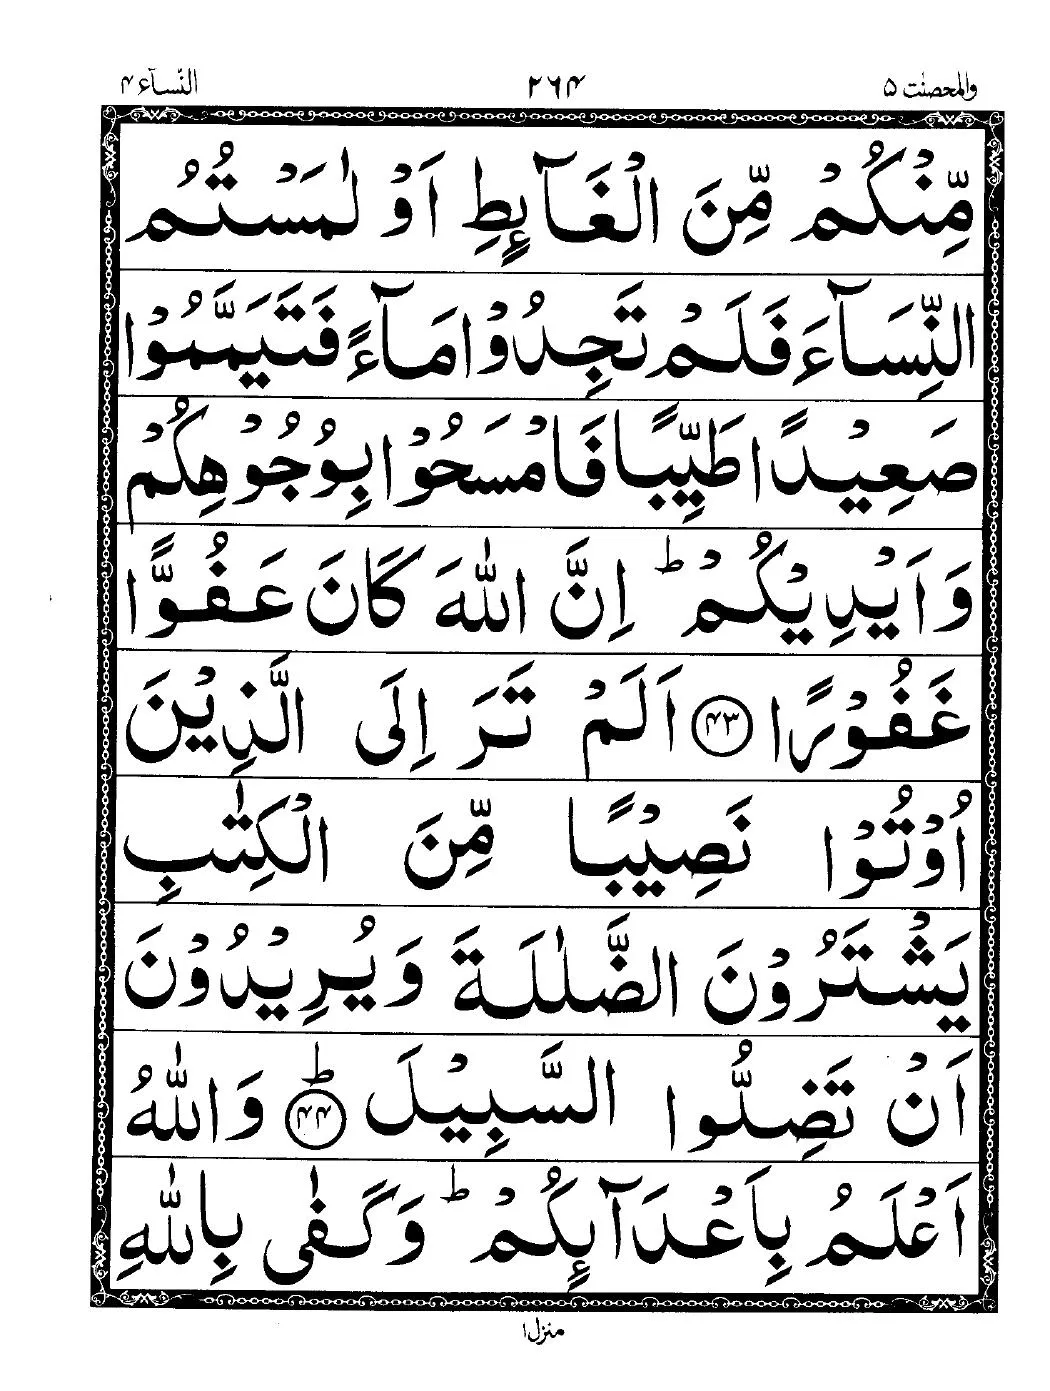 والمحصنٰت ۵ ۲۶۴ النّسآء ۴
مِّنْكُمْ مِّنَ الْغَآىِٕطِ اَوْ لٰمَسْتُمُ
النِّسَآءَ فَلَمْ تَجِدُوْا مَآءً فَتَيَمَّمُوْا
صَعِيْدًا طَيِّبًا فَامْسَحُوْا بِوُجُوْهِكُمْ
وَاَيْدِيْكُمْ ؕ اِنَّ اللّٰهَ كَانَ عَفُوًّا
غَفُوْرًا ﴿۴۳﴾ اَلَمْ تَرَ اِلَى الَّذِيْنَ
اُوْتُوْا نَصِيْبًا مِّنَ الْكِتٰبِ
يَشْتَرُوْنَ الضَّلٰلَةَ وَيُرِيْدُوْنَ
اَنْ تَضِلُّوا السَّبِيْلَ ﴿۴۴﴾ؕ وَاللّٰهُ
اَعْلَمُ بِاَعْدَآىِٕكُمْ ؕ وَكَفٰى بِاللّٰهِ
منزل۱